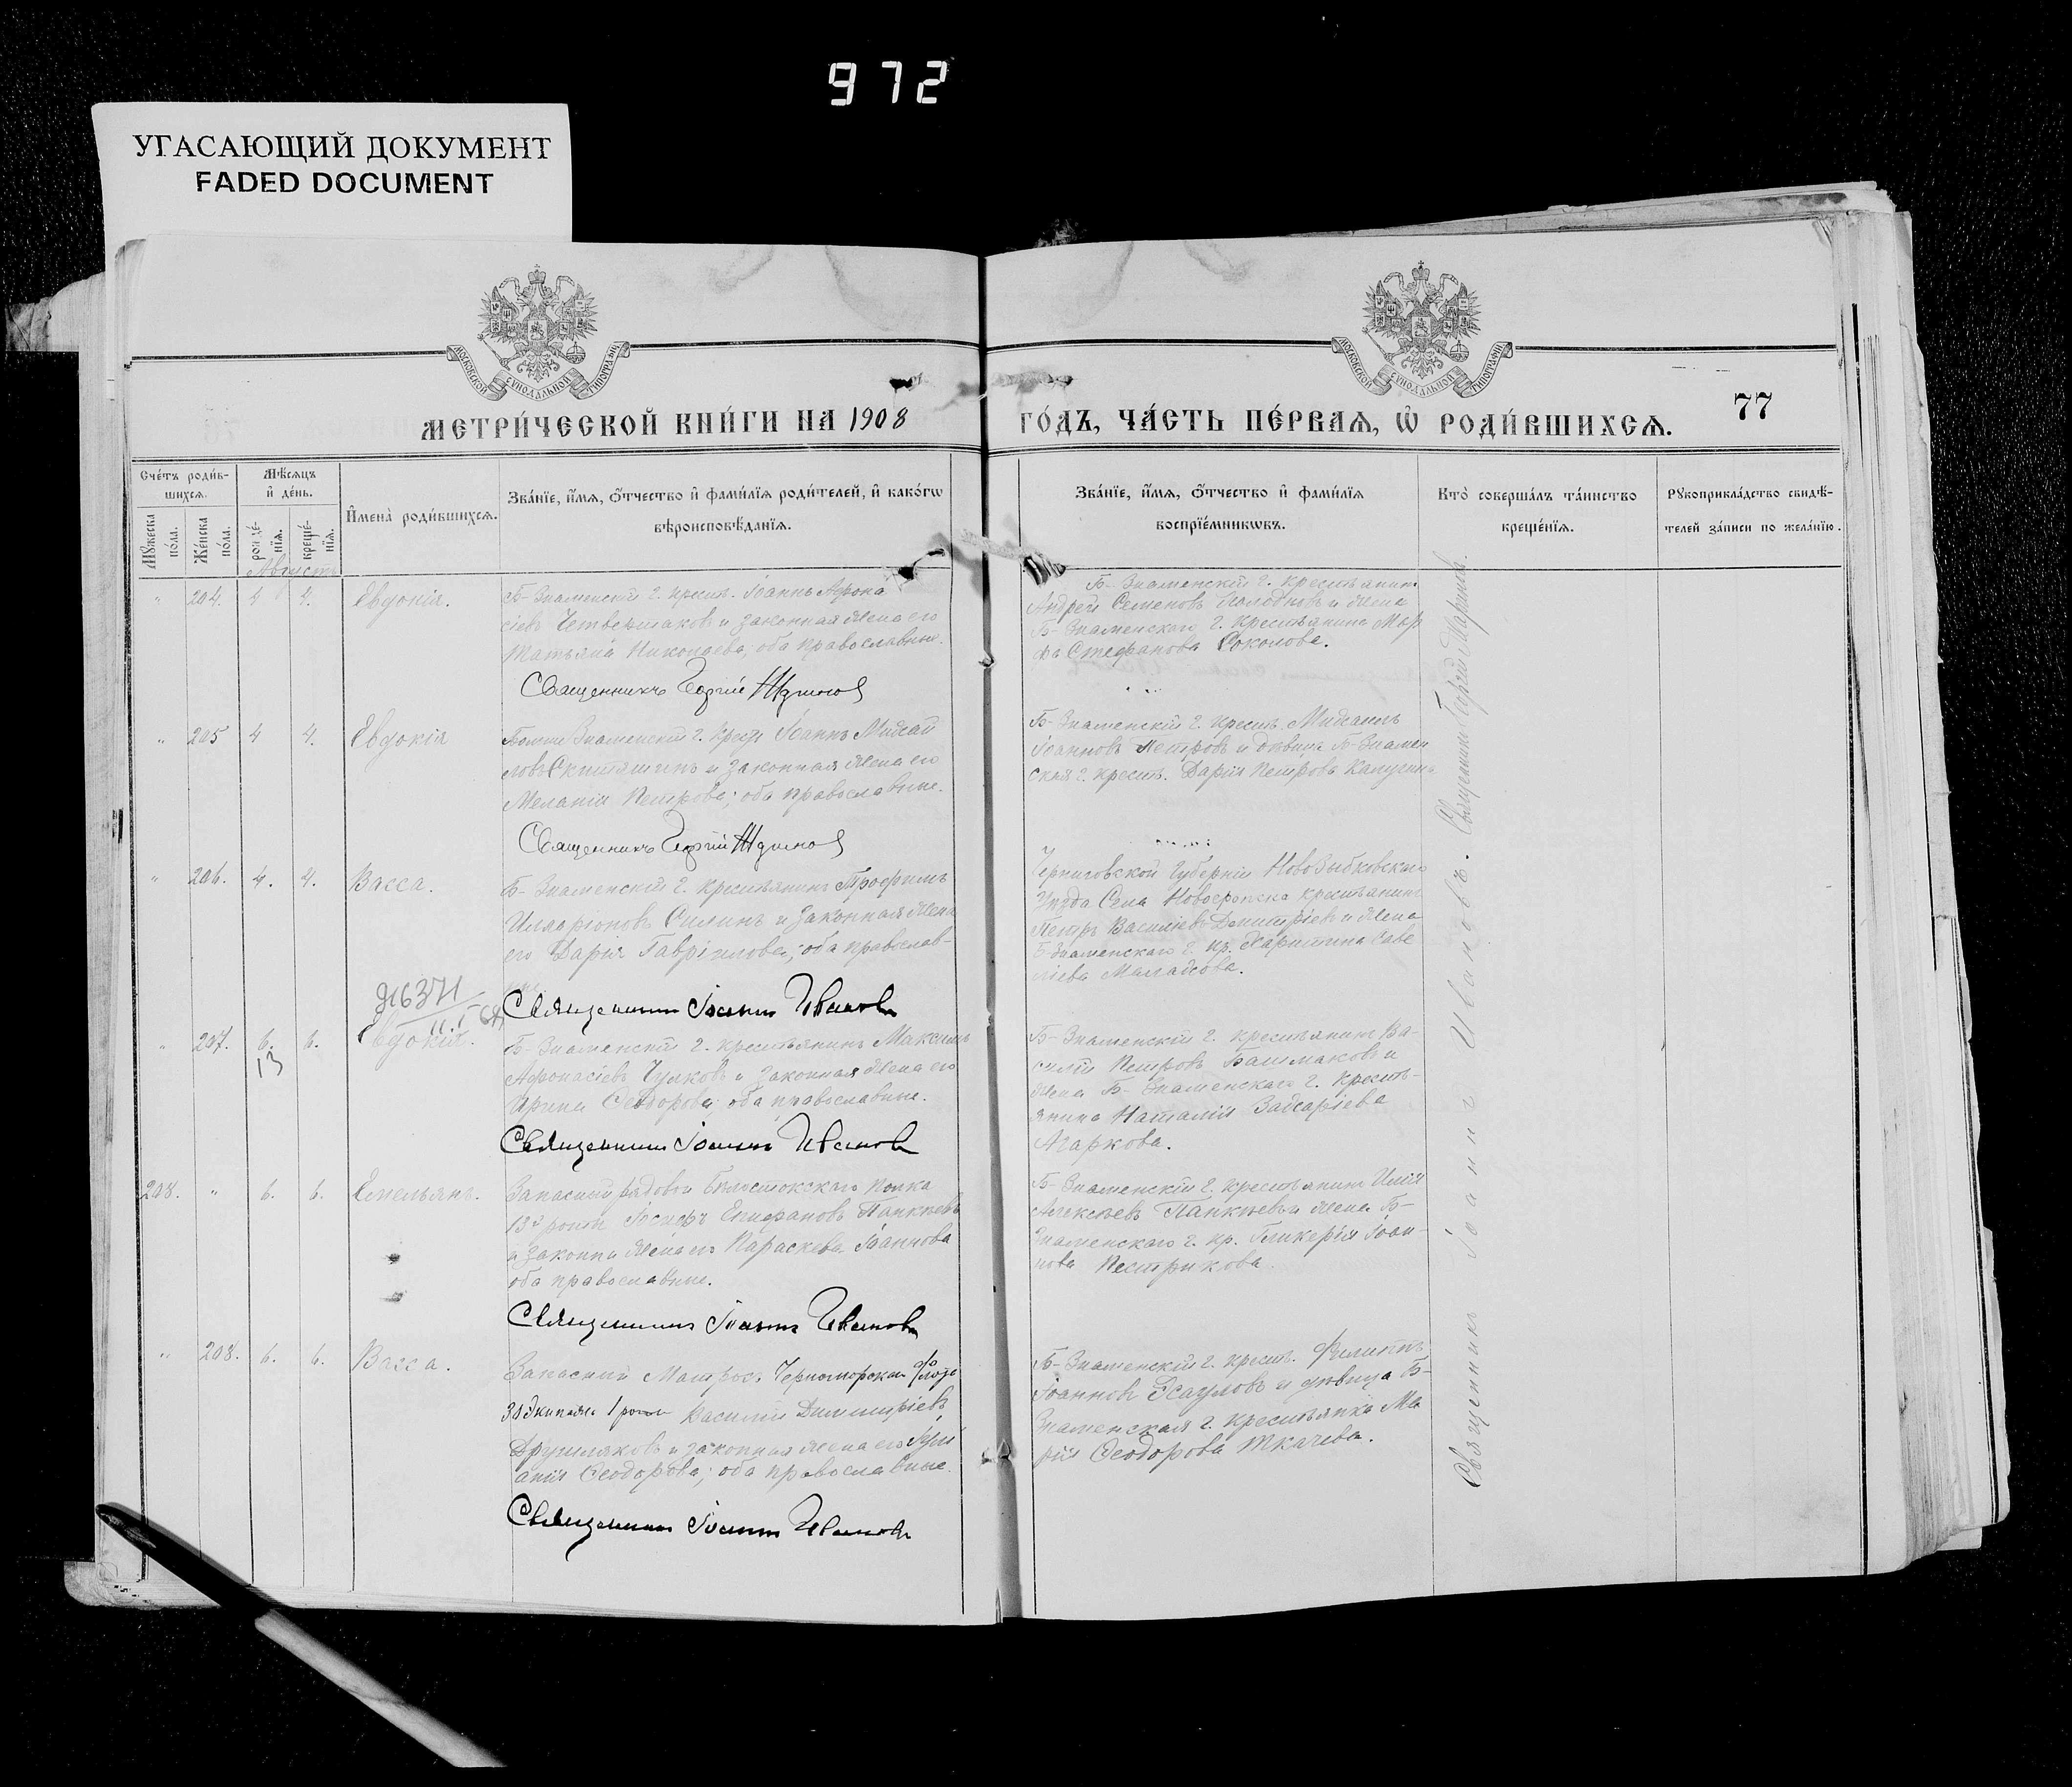 972
УГАСАЮЩИЙ ДОКУМЕНТ
FADED DOCUMENT
МОСКОВСКОЙ СѴНОДАЛЬНОЙ ТИПОГРАФІИ
МОСКОВСКОЙ СѴНОДАЛЬНОЙ ТИПОГРАФІИ
МЕТРИ́ЧЕСКОЙ КНИ́ГИ НА 1908
ГО́ДЪ, ЧА́СТЬ ПЕ́РВАѦ, Ѽ РОДИ́ВШИХСѦ.
77
Сче́тъ роди́в-
шихсѧ.
Мꙋ́жеска по́ла.
Же́нска по́ла.
Мѣ́сѧцъ
и҆ де́нь.
рожде́-нїѧ.
креще́-нїѧ.
И҆мена̀ роди́вшихсѧ.
Зва́нїе, и҆́мѧ, ѻ҆́тчество и҆ фами́лїѧ роди́телей, и҆ како́гѡ
вѣроисповѣ́данїѧ.
Зва́нїе, и҆́мѧ, ѻ҆́тчество и҆ фами́лїѧ
воспрїе́мникѡвъ.
Кто̀ соверша́лъ та́инство
креще́нїѧ.
Рꙋкоприкла́дство свидѣ́-
телей за́писи по жела́нїю.
Августъ
" 204. 4 4. Евдокія.
Б-Знаменскій г. крест. Іоаннъ Афона
сіевъ Четвертаковъ и законная жена его
Татьяна Николаева; оба православные.
Священникъ Георгій
Б-Знаменскій г. крестьянинъ
Андрей Семеновъ Холодновъ и жена
Б-Знаменскаго г. крестьянина Мар
фа Стефанова Соколова.
" 205 4 4. Евдокія
Больше Знаменскій г. крест Іоаннъ Михай
ловъ и законная жена его
Меланія Петрова; оба православные.
Священникъ Георгій
Б-Знаменскій г. крест. Михаилъ
Іоанновъ Петровъ и дѣвица Б-Знамен
ская г. крест. Дарія Петрова
Священникъ Георгій
" 206. 4. 4. Васса.
Б-Знаменскій г. крестьянинъ Трофимъ
Илларіоновъ Силинъ и законная жена
его Дарія Гавріилова; оба православ-
ные.
Священникъ Іоаннъ Ивановъ
Черниговской Губерніи НовоЗыбковскаго
Уѣзда Села Новоропска крестьянинъ
Петръ Василіевъ Димитріевъ и жена
Б-Знаменскаго г. кр. Харитина Саве
ліева Малахова.
" 207. 6. 6. Евдокія.
13
Б-Знаменскій г. крестьянинъ Максимъ
Афонасіевъ Чулковъ и законная жена его
Ирина Ѳеодорова; оба православные.
Священникъ Іоаннъ Ивановъ
Б-Знаменскій г. крестьянинъ Ва-
силій Петровъ Башмаковъ и
жена Б-Знаменскаго г. кресть-
янина Наталія Захаріева
Агаркова.
208. " 6. 6. Емельянъ.
Запасный рядовой Бѣлостокскаго полка
13й роты Іосифъ Епифановъ Папкѣевъ
и законна жена его Параскева Іоаннова
оба православные.
Священникъ Іоаннъ Ивановъ
Б-Знаменскій г. крестьянинъ Илія
Алексѣевъ Папкѣевъ и жена Б-
Знаменскаго г. кр. Гликерія Іоан-
нова Пестрикова.
" 208. 6. 6. Васса.
Запасный Матросъ Черноморскаго флота
30 экипажа 1 роты Василій Димитріевъ
Друшляковъ и законная жена его Іулі
анія Ѳеодорова; оба православные.
Священникъ Іоаннъ Ивановъ
Б-Знаменскій г. крест. Филиппъ
Іоанновъ Есауловъ и дѣвица Б-
Знаменская г. крестьянка Ма
рія Ѳеодорова Ткачева.
Священникъ Іоаннъ Ивановъ.